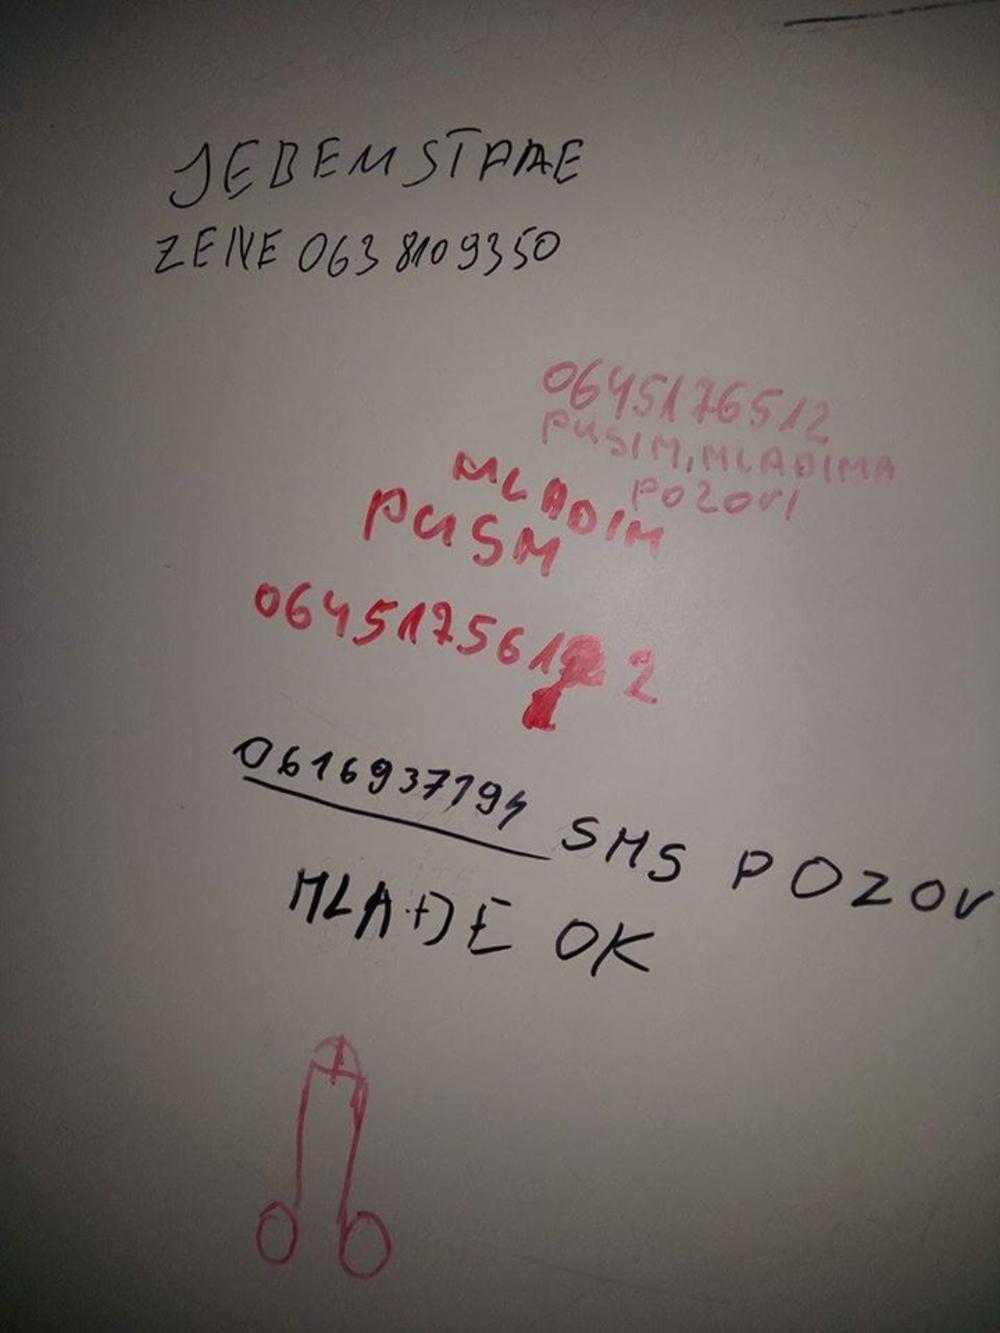 JEBEM STARE
ZENE 063 8109350
0645176512
PUSIM, MLADIMA
POZOVI
MLADIM
PUSM
06451756122
0616937794 SMS POZOV
MLAĐE OK